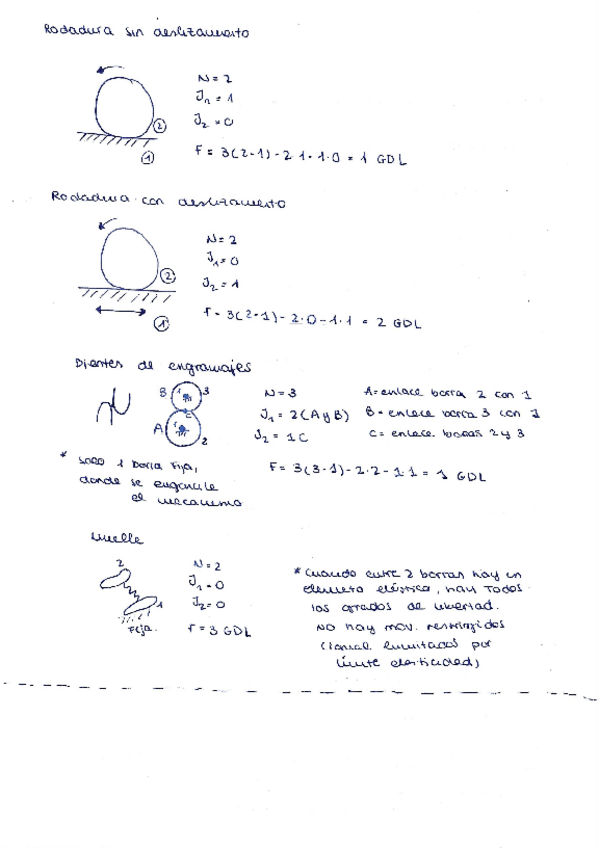 Rodadura sin deslizamiento
N = 2
J₁ = 1
J₂ = 0
2
1
F = 3(2-1) - 2·1 - 1·0 = 1 GDL
Rodadura con deslizamiento
N = 2
J₁ = 0
2
J₂ = 1
1
F = 3(2-1) - 2·0 - 1·1 = 2 GDL
Dientes de engranajes
B 3 N = 3 A = enlace barra 2 con 1
C J₁ = 2 (A y B) B = enlace barra 3 con 1
A 2 J₂ = 1 C C = enlace barras 2 y 3
* solo 1 barra fija,
donde se enganche
el mecanismo
F = 3(3-1) - 2·2 - 1·1 = 1 GDL
Muelle
2 N = 2
J₁ = 0
1 J₂ = 0
Fija. F = 3 GDL
* Cuando entre 2 barras hay un
elemento elástico, hay todos
los grados de libertad.
NO hay mov. restringidos
limitados por
límite elasticidad)